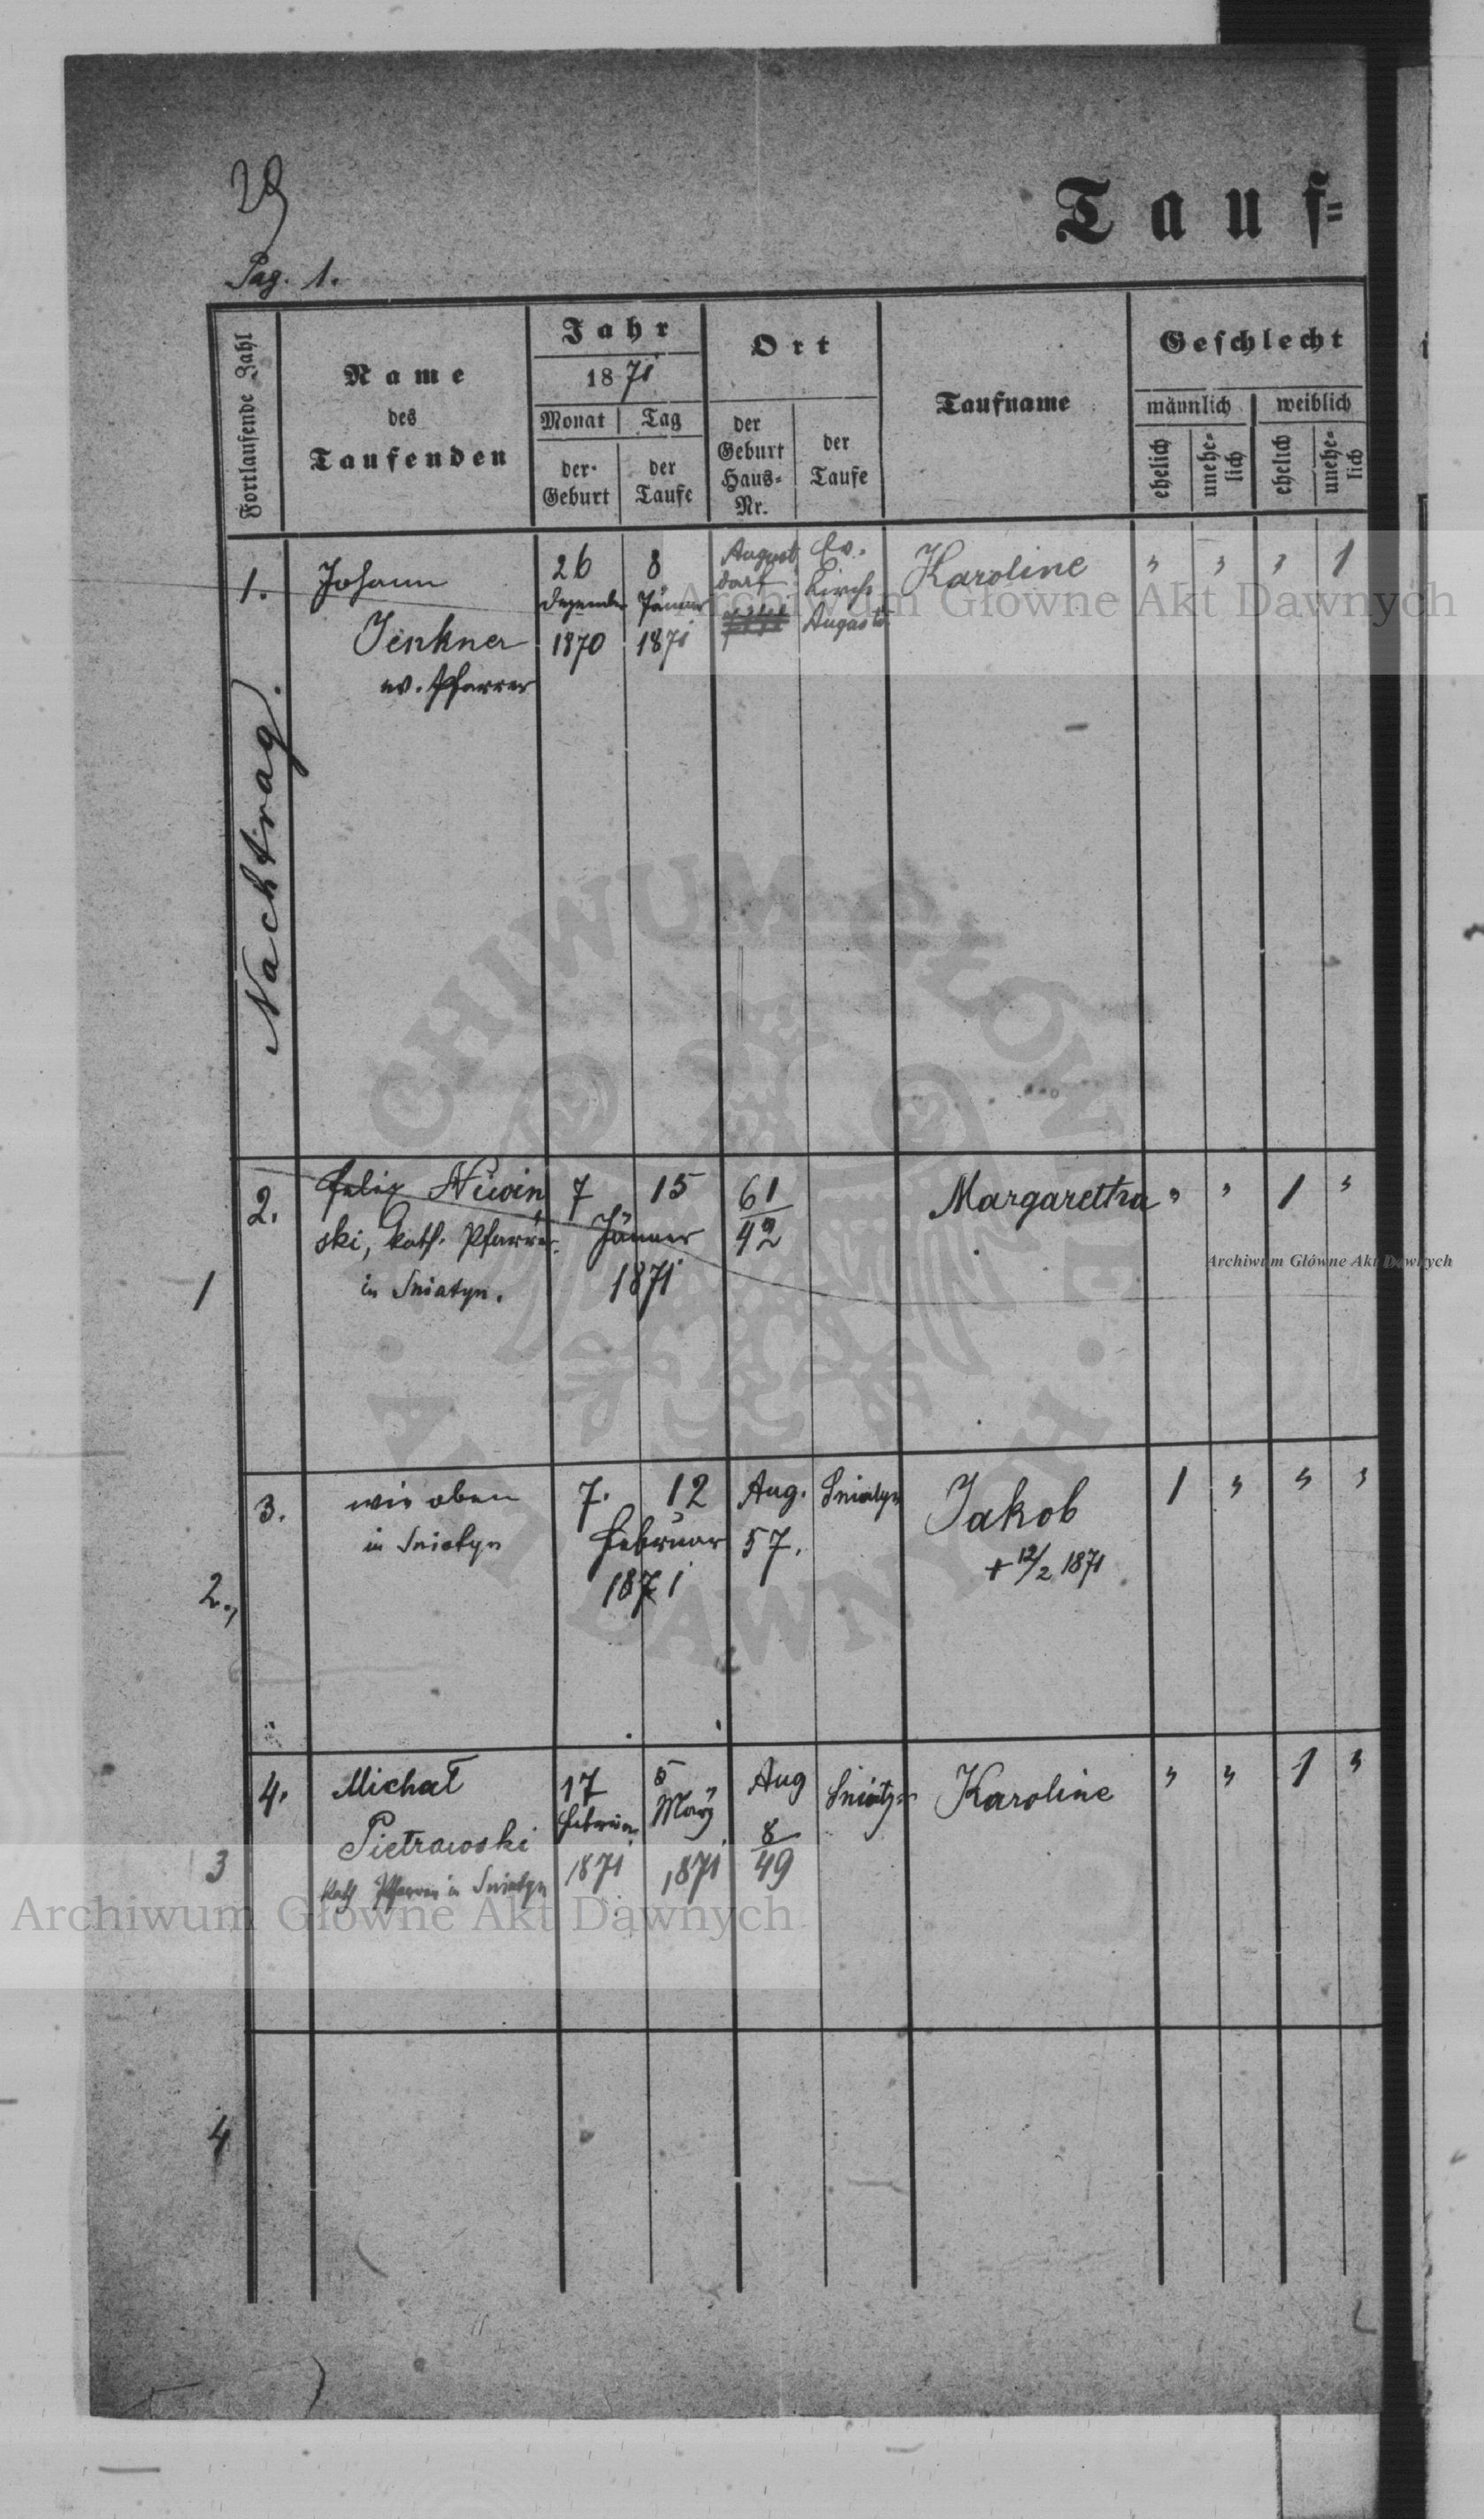 29
Pag. 1.
Tauf=
Fortlaufende Zahl
Name
des
Taufenden
Jahr
1871
Monat
Tag
der
Geburt
der
Taufe
Ort
der
Geburt
Haus=
Nr.
der
Taufe
Taufname
Geschlecht
männlich
weiblich
ehelich
unehe=
lich
ehelich
unehe=
lich
1.
Johann
Jenkner
ev. Pfarrer
26
Dezember
1870
8
Jänner
1871
August
dorf
Ev.
Kirche
Augustd
Karoline
" " " 1
Nachtrag.
Archiwum Główne Akt Dawnych
2.
Felix
ski, kath. Pfarrer
in Sniatyn.
7 15
Jänner
1871
61
42
Margaretha
" " 1 "
Archiwum Główne Akt Dawnych
1
3.
wie oben
in Sniatyn
7. 12
Februar
1871
Aug.
57.
Sniatyn
Jakob
+ 12/2 1871
1 " " "
2.,
ARCHIWUM GŁÓWNE · AKT DAWNYCH ·
4.
Michał
Pietrowski
kath Pfarrer in Sniatyn
17
Februar
1871
5
März
1871
Aug
8
49
Sniatyn
Karoline
" " 1 "
3
Archiwum Główne Akt Dawnych
4